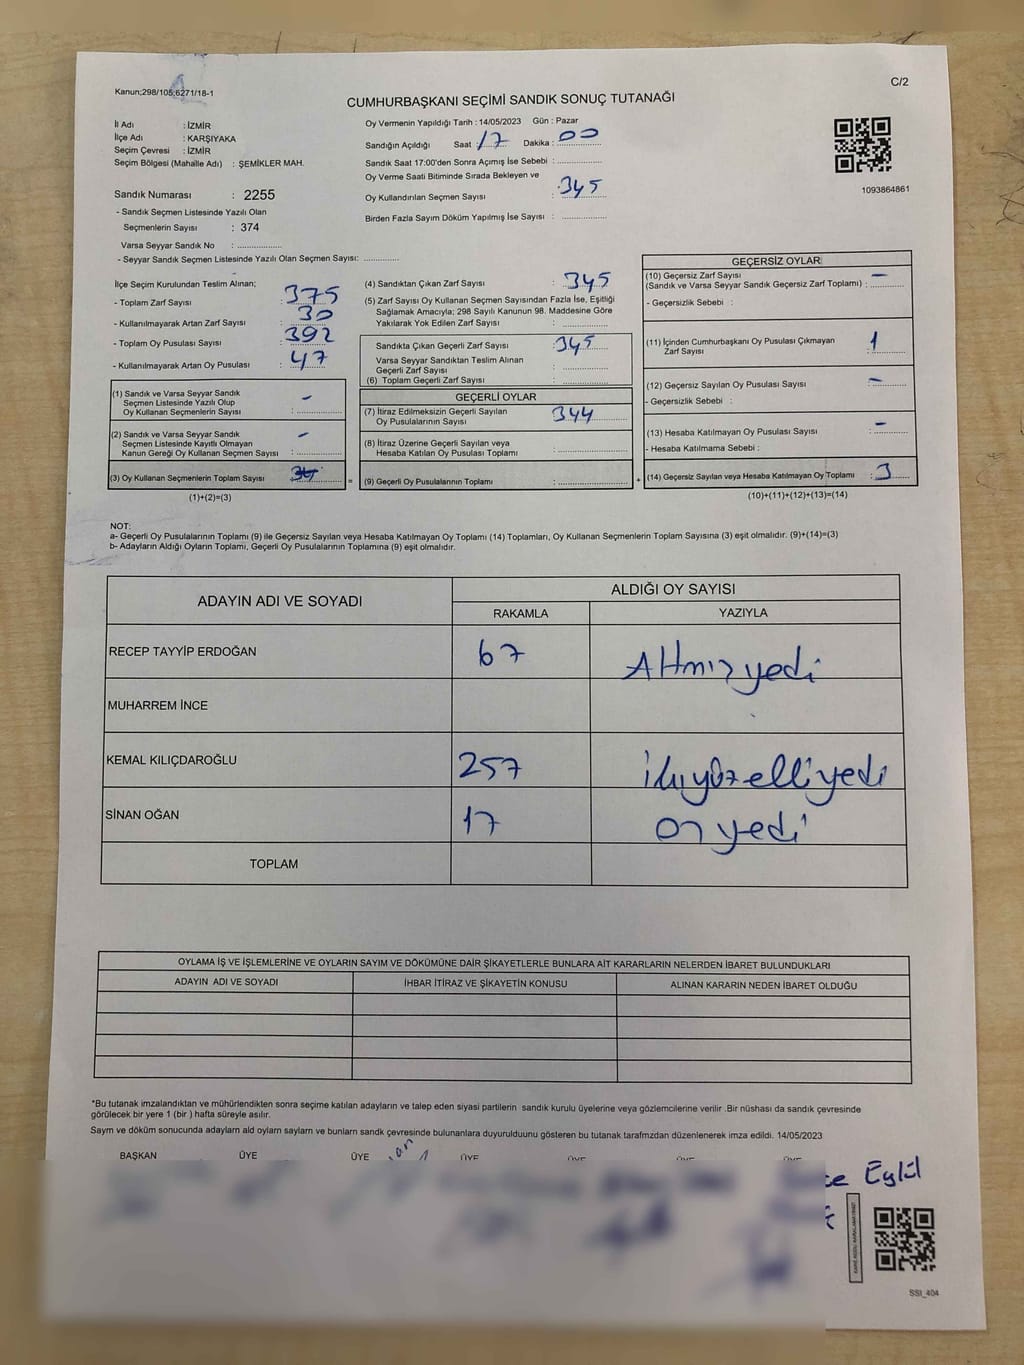 Kanun;298/105;6271/18-1
C/2
CUMHURBAŞKANI SEÇİMİ SANDIK SONUÇ TUTANAĞI
İl Adı : İZMİR
İlçe Adı : KARŞIYAKA
Seçim Çevresi : İZMİR
Seçim Bölgesi (Mahalle Adı) : ŞEMİKLER MAH.
Sandık Numarası : 2255
- Sandık Seçmen Listesinde Yazılı Olan
Seçmenlerin Sayısı : 374
Varsa Seyyar Sandık No : ..............
- Seyyar Sandık Seçmen Listesinde Yazılı Olan Seçmen Sayısı: ............
Oy Vermenin Yapıldığı Tarih : 14/05/2023 Gün : Pazar
Sandığın Açıldığı Saat : 17 Dakika : 00
Sandık Saat 17:00'den Sonra Açımış İse Sebebi : ..............
Oy Verme Saati Bitiminde Sırada Bekleyen ve
Oy Kullandırılan Seçmen Sayısı : 345
Birden Fazla Sayım Döküm Yapılmış İse Sayısı : ..............
1093864861
İlçe Seçim Kurulundan Teslim Alınan;
- Toplam Zarf Sayısı : 375
- Kullanılmayarak Artan Zarf Sayısı : 30
- Toplam Oy Pusulası Sayısı : 392
- Kullanılmayarak Artan Oy Pusulası : 47
(1) Sandık ve Varsa Seyyar Sandık
Seçmen Listesinde Yazılı Olup
Oy Kullanan Seçmenlerin Sayısı : -
(2) Sandık ve Varsa Seyyar Sandık
Seçmen Listesinde Kayıtlı Olmayan
Kanun Gereği Oy Kullanan Seçmen Sayısı : -
(3) Oy Kullanan Seçmenlerin Toplam Sayısı :
(1)+(2)=(3)
(4) Sandıktan Çıkan Zarf Sayısı : 345
(5) Zarf Sayısı Oy Kullanan Seçmen Sayısından Fazla İse, Eşitliği
Sağlamak Amacıyla; 298 Sayılı Kanunun 98. Maddesine Göre
Yakılarak Yok Edilen Zarf Sayısı : ..............
Sandıkta Çıkan Geçerli Zarf Sayısı : 345
Varsa Seyyar Sandıktan Teslim Alınan
Geçerli Zarf Sayısı : ..............
(6) Toplam Geçerli Zarf Sayısı : ..............
GEÇERLİ OYLAR
(7) İtiraz Edilmeksizin Geçerli Sayılan
Oy Pusulalarının Sayısı : 344
(8) İtiraz Üzerine Geçerli Sayılan veya
Hesaba Katılan Oy Pusulası Toplamı : ..............
= (9) Geçerli Oy Pusulalarının Toplamı : .............. +
GEÇERSİZ OYLAR
(10) Geçersiz Zarf Sayısı
(Sandık ve Varsa Seyyar Sandık Geçersiz Zarf Toplamı) : -
- Geçersizlik Sebebi :
(11) İçinden Cumhurbaşkanı Oy Pusulası Çıkmayan
Zarf Sayısı : 1
(12) Geçersiz Sayılan Oy Pusulası Sayısı : -
- Geçersizlik Sebebi :
(13) Hesaba Katılmayan Oy Pusulası Sayısı : -
- Hesaba Katılmama Sebebi :
(14) Geçersiz Sayılan veya Hesaba Katılmayan Oy Toplamı : 3
(10)+(11)+(12)+(13)=(14)
NOT:
a- Geçerli Oy Pusulalarının Toplamı (9) ile Geçersiz Sayılan veya Hesaba Katılmayan Oy Toplamı (14) Toplamları, Oy Kullanan Seçmenlerin Toplam Sayısına (3) eşit olmalıdır. (9)+(14)=(3)
b- Adayların Aldığı Oyların Toplamı, Geçerli Oy Pusulalarının Toplamına (9) eşit olmalıdır.
ADAYIN ADI VE SOYADI ALDIĞI OY SAYISI
RAKAMLA YAZIYLA
RECEP TAYYİP ERDOĞAN 67 Altmış yedi
MUHARREM İNCE
KEMAL KILIÇDAROĞLU 257 ikiyüzelliyedi
SİNAN OĞAN 17 On yedi
TOPLAM
OYLAMA İŞ VE İŞLEMLERİNE VE OYLARIN SAYIM VE DÖKÜMÜNE DAİR ŞİKAYETLERLE BUNLARA AİT KARARLARIN NELERDEN İBARET BULUNDUKLARI
ADAYIN ADI VE SOYADI İHBAR İTİRAZ VE ŞİKAYETİN KONUSU ALINAN KARARIN NEDEN İBARET OLDUĞU
*Bu tutanak imzalandıktan ve mühürlendikten sonra seçime katılan adayların ve talep eden siyasi partilerin sandık kurulu üyelerine veya gözlemcilerine verilir .Bir nüshası da sandık çevresinde
görülecek bir yere 1 (bir ) hafta süreyle asılır.
Sayım ve döküm sonucunda adayların ald oyların sayların ve bunlarn sandk çevresinde bulunanlara duyurulduunu gösteren bu tutanak tarafmzdan düzenlenerek imza edildi. 14/05/2023
BAŞKAN ÜYE ÜYE ÜYE ÜYE ÜYE ÜYE
Eylül
SSI_404